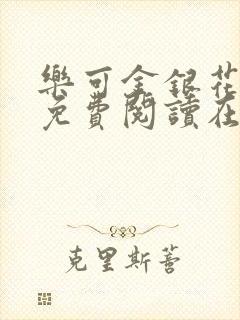 樂可金銀花
免費閱讀在
克里斯蒼